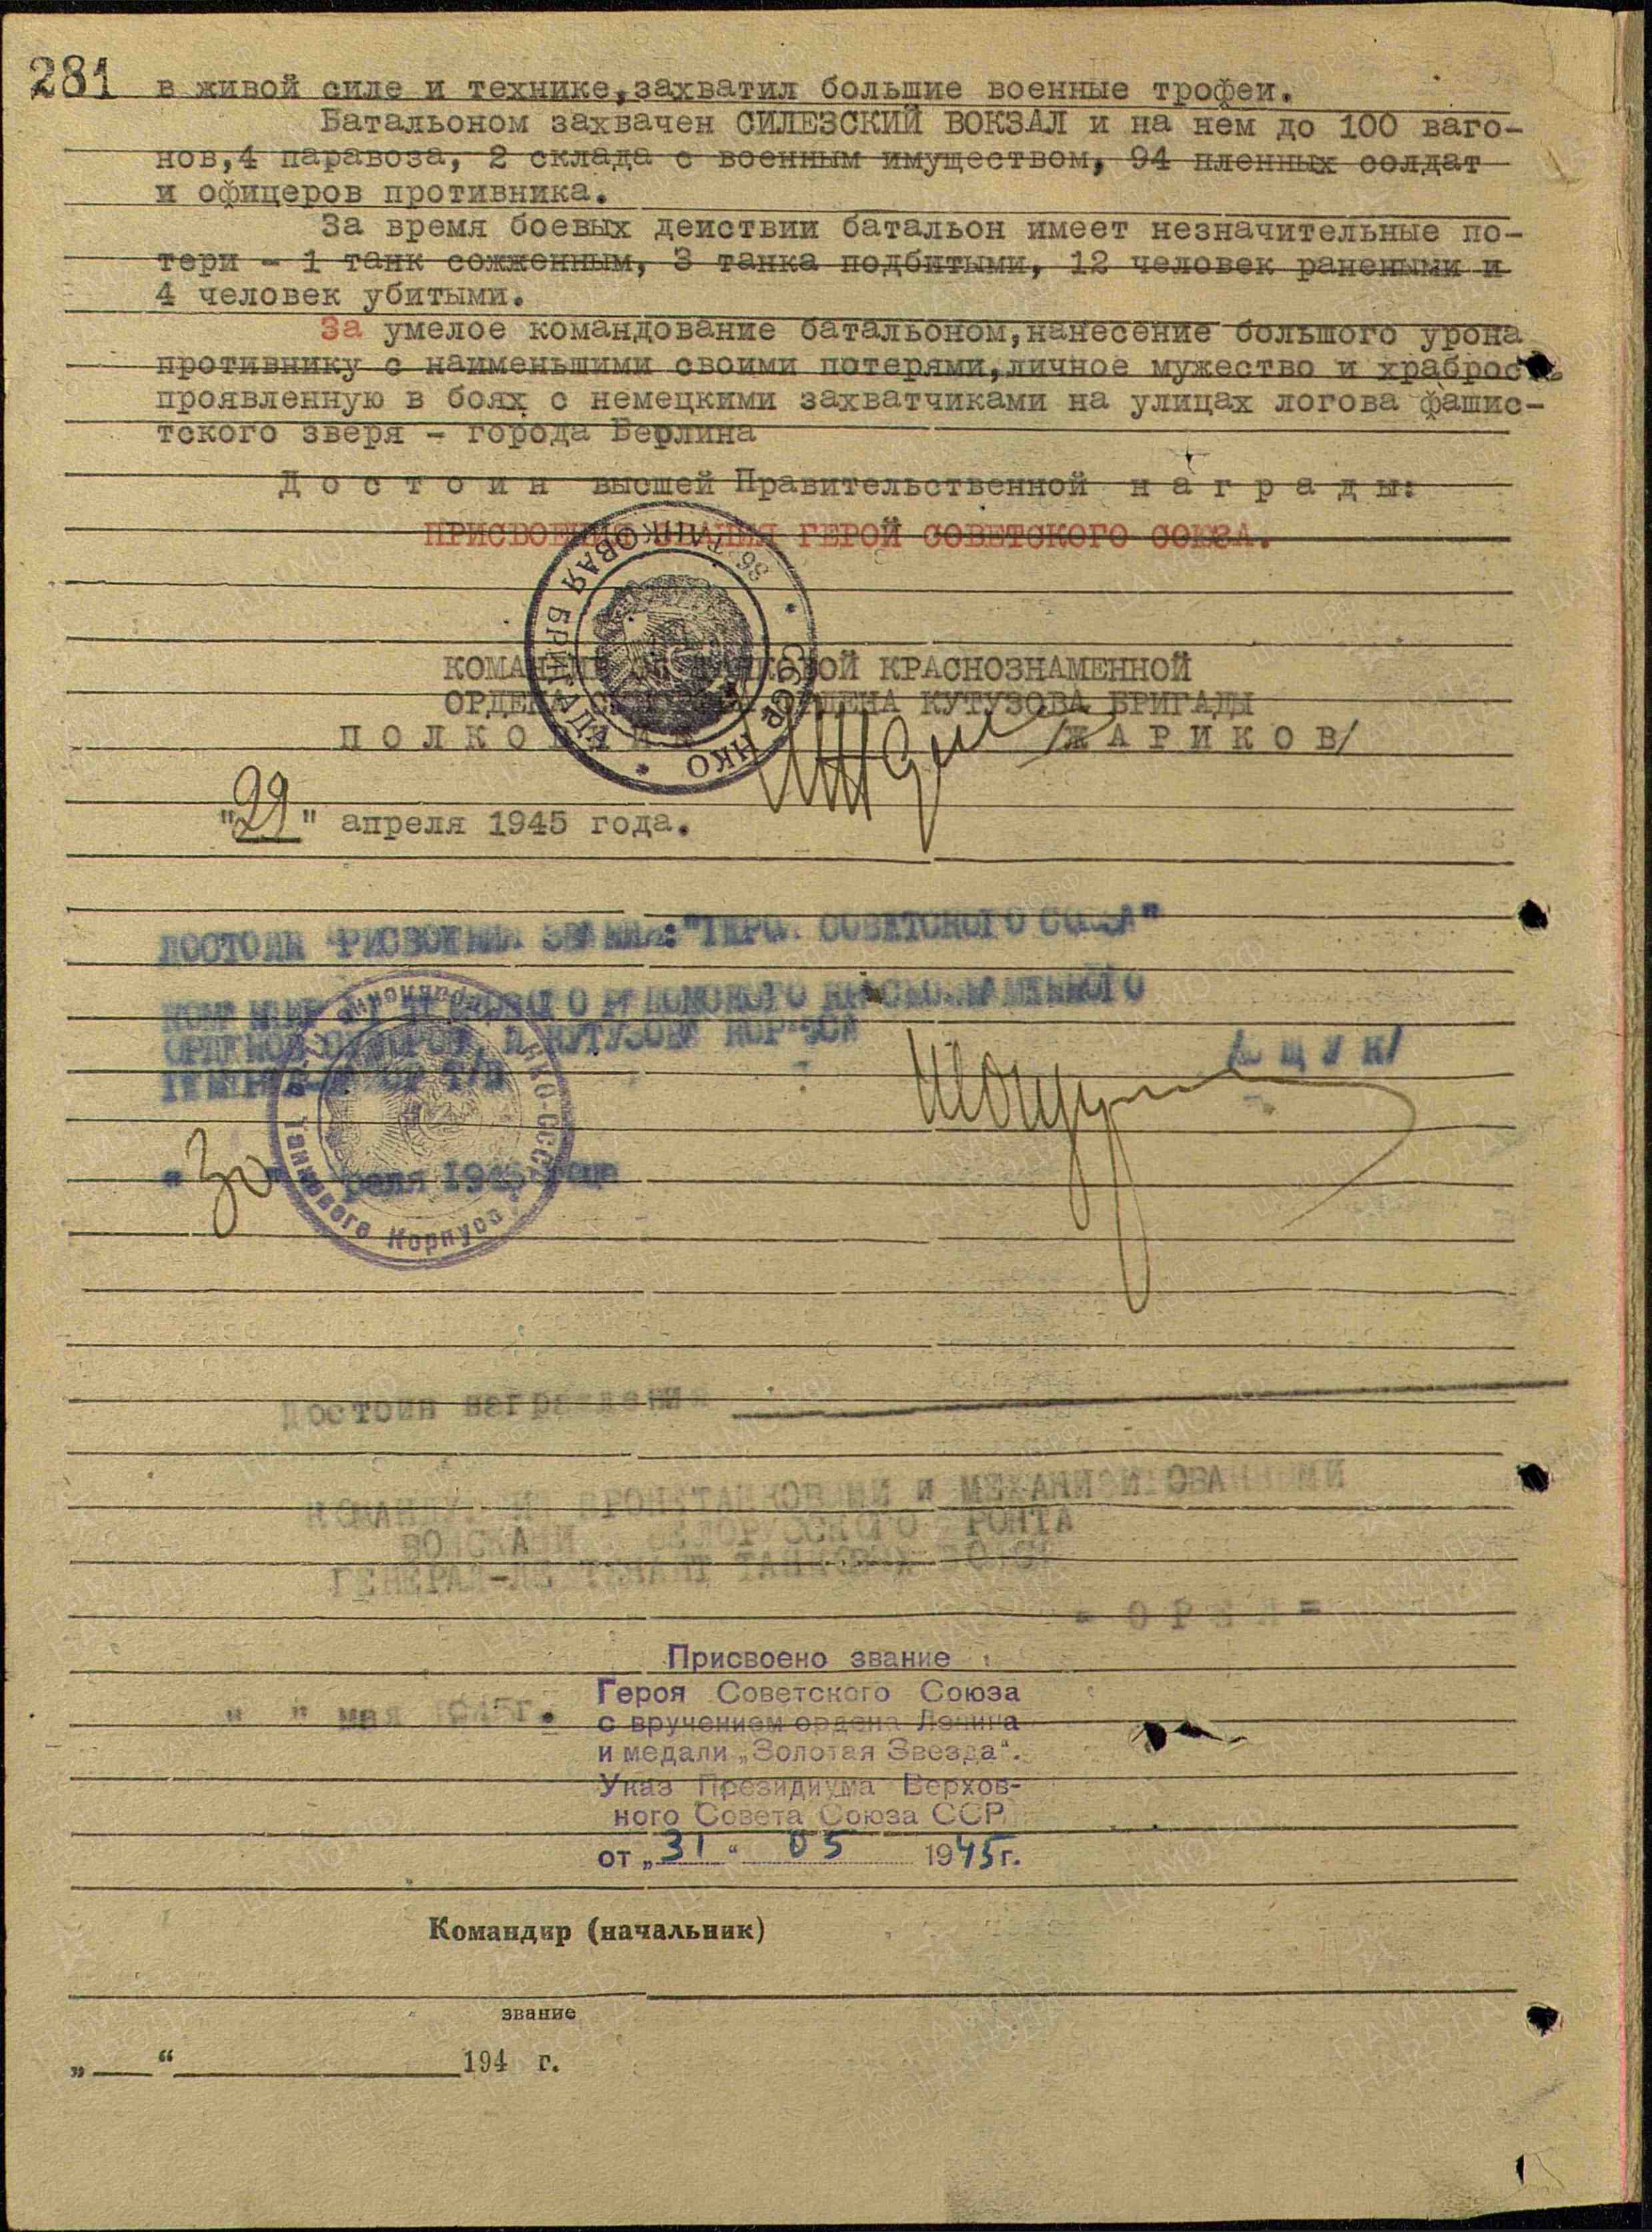 281
в живой силе и технике,захватил большие военные трофеи.
Батальоном захвачен СИЛЕЗСКИЙ ВОКЗАЛ и на нем до 100 ваго-
нов,4 паравоза, 2 склада с военным имуществом, 94 пленных солдат
и офицеров противника.
За время боевых действии батальон имеет незначительные по-
тери - 1 танк сожженным, 3 танка подбитыми, 12 человек ранеными и
4 человек убитыми.
За умелое командование батальоном,нанесение большого урона
противнику с наименьшими своими потерями,личное мужество и храброс
проявленную в боях с немецкими захватчиками на улицах логова фашис-
тского зверя - города Берлина
Д о с т о и н высшей Правительственной н а г р а д ы:
ПРИСВОЕНИЯ ЗВАНИЯ ГЕРОЙ СОВЕТСКОГО СОЮЗА.
ТАНКОВАЯ БРИГАДА * НКО СССР *
КРАСНОЗНАМЕННОЙ
ОРДЕНА КУТУЗОВА БРИГАДЫ
П О Л К О В Н И К /Ж А Р И К О В/
"29" апреля 1945 года.
ДОСТОИН ПРИСВОЕНИЯ ЗВАНИЯ:"ГЕРОЙ СОВЕТСКОГО СОЮЗА"
КРАСНОЗНАМЕННОГО
КУТУЗОВА КОРПУСА
Танкового Корпуса НКО-СССР
"30" апреля 1945 года
Достоин награждения
КОМАНДУЮЩИЙ БРОНЕТАНКОВЫМИ И МЕХАНИЗИРОВАННЫМИ
ВОЙСКАМИ БЕЛОРУССКОГО ФРОНТА
ГЕНЕРАЛ-ЛЕЙТЕНАНТ ТАНКОВЫХ ВОЙСК
- О Р Е Л -
" " мая 1945г.
Присвоено звание
Героя Советского Союза
с вручением ордена Ленина
и медали „Золотая Звезда".
Указ Президиума Верхов-
ного Совета Союза ССР
от „31" 05 1945г.
Командир (начальник)
звание
„ “ 194 г.